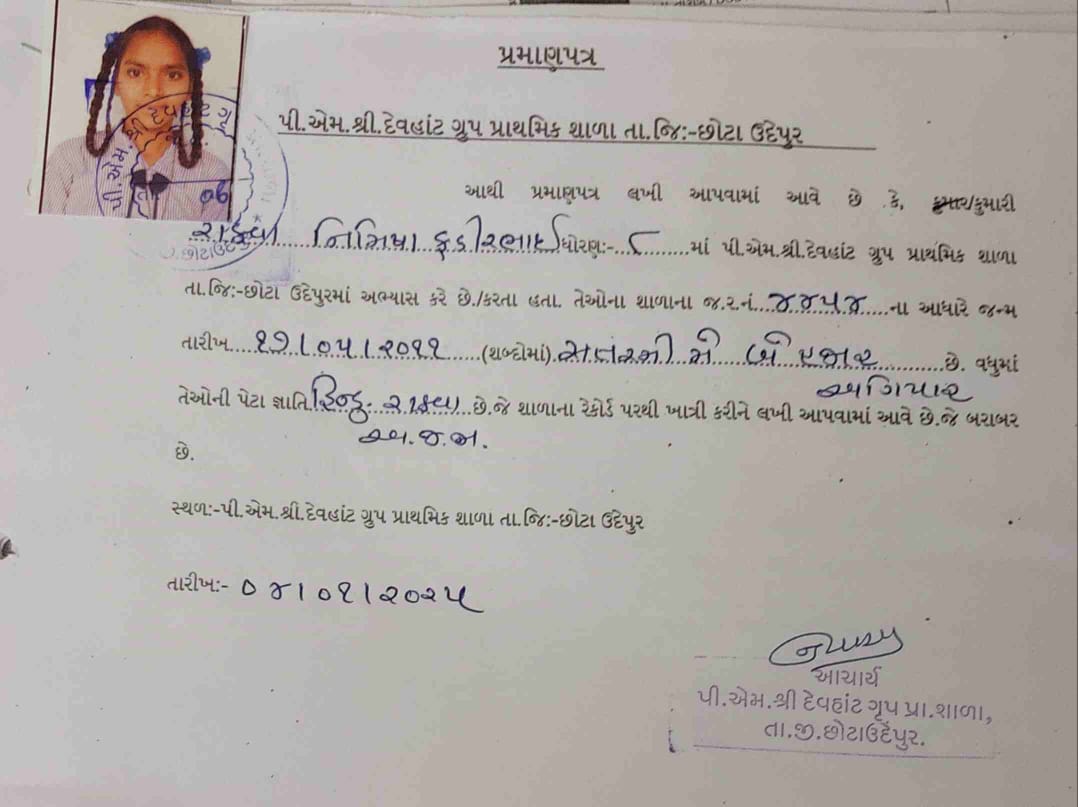 પ્રમાણપત્ર
પી.એમ.શ્રી.દેવહાંટ ગ્રુપ પ્રાથમિક શાળા તા.જિ:-છોટા ઉદેપુર
આથી પ્રમાણપત્ર લખી આપવામાં આવે છે કે, કુમાર/કુમારી
રાઠવા નિમિષા ફડીરભાઈ ધોરણ:-...૮.......માં પી.એમ.શ્રી.દેવહાંટ ગ્રુપ પ્રાથમિક શાળા
તા.જિ:-છોટા ઉદેપુરમાં અભ્યાસ કરે છે./કરતા હતા. તેઓના શાળાના જ.ર.નં...૪૪૫૪....ના આધારે જન્મ
તારીખ...૧૭/૦૫/૨૦૧૧.....(શબ્દોમાં).સતરમી મે બે હજાર............છે. વધુમાં
અગિયાર
તેઓની પેટા જ્ઞાતિ હિન્દુ. રાઠવા છે.જે શાળાના રેકોર્ડ પરથી ખાત્રી કરીને લખી આપવામાં આવે છે.જે બરાબર
અ.જ.જા.
છે.
સ્થળ:-પી.એમ.શ્રી.દેવહાંટ ગ્રુપ પ્રાથમિક શાળા તા.જિ:-છોટા ઉદેપુર
તારીખ:- ૦૪/૦૧/૨૦૨૫
આચાર્ય
પી.એમ.શ્રી દેવહાંટ ગૃપ પ્રા.શાળા,
તા.જી.છોટાઉદેપુર.